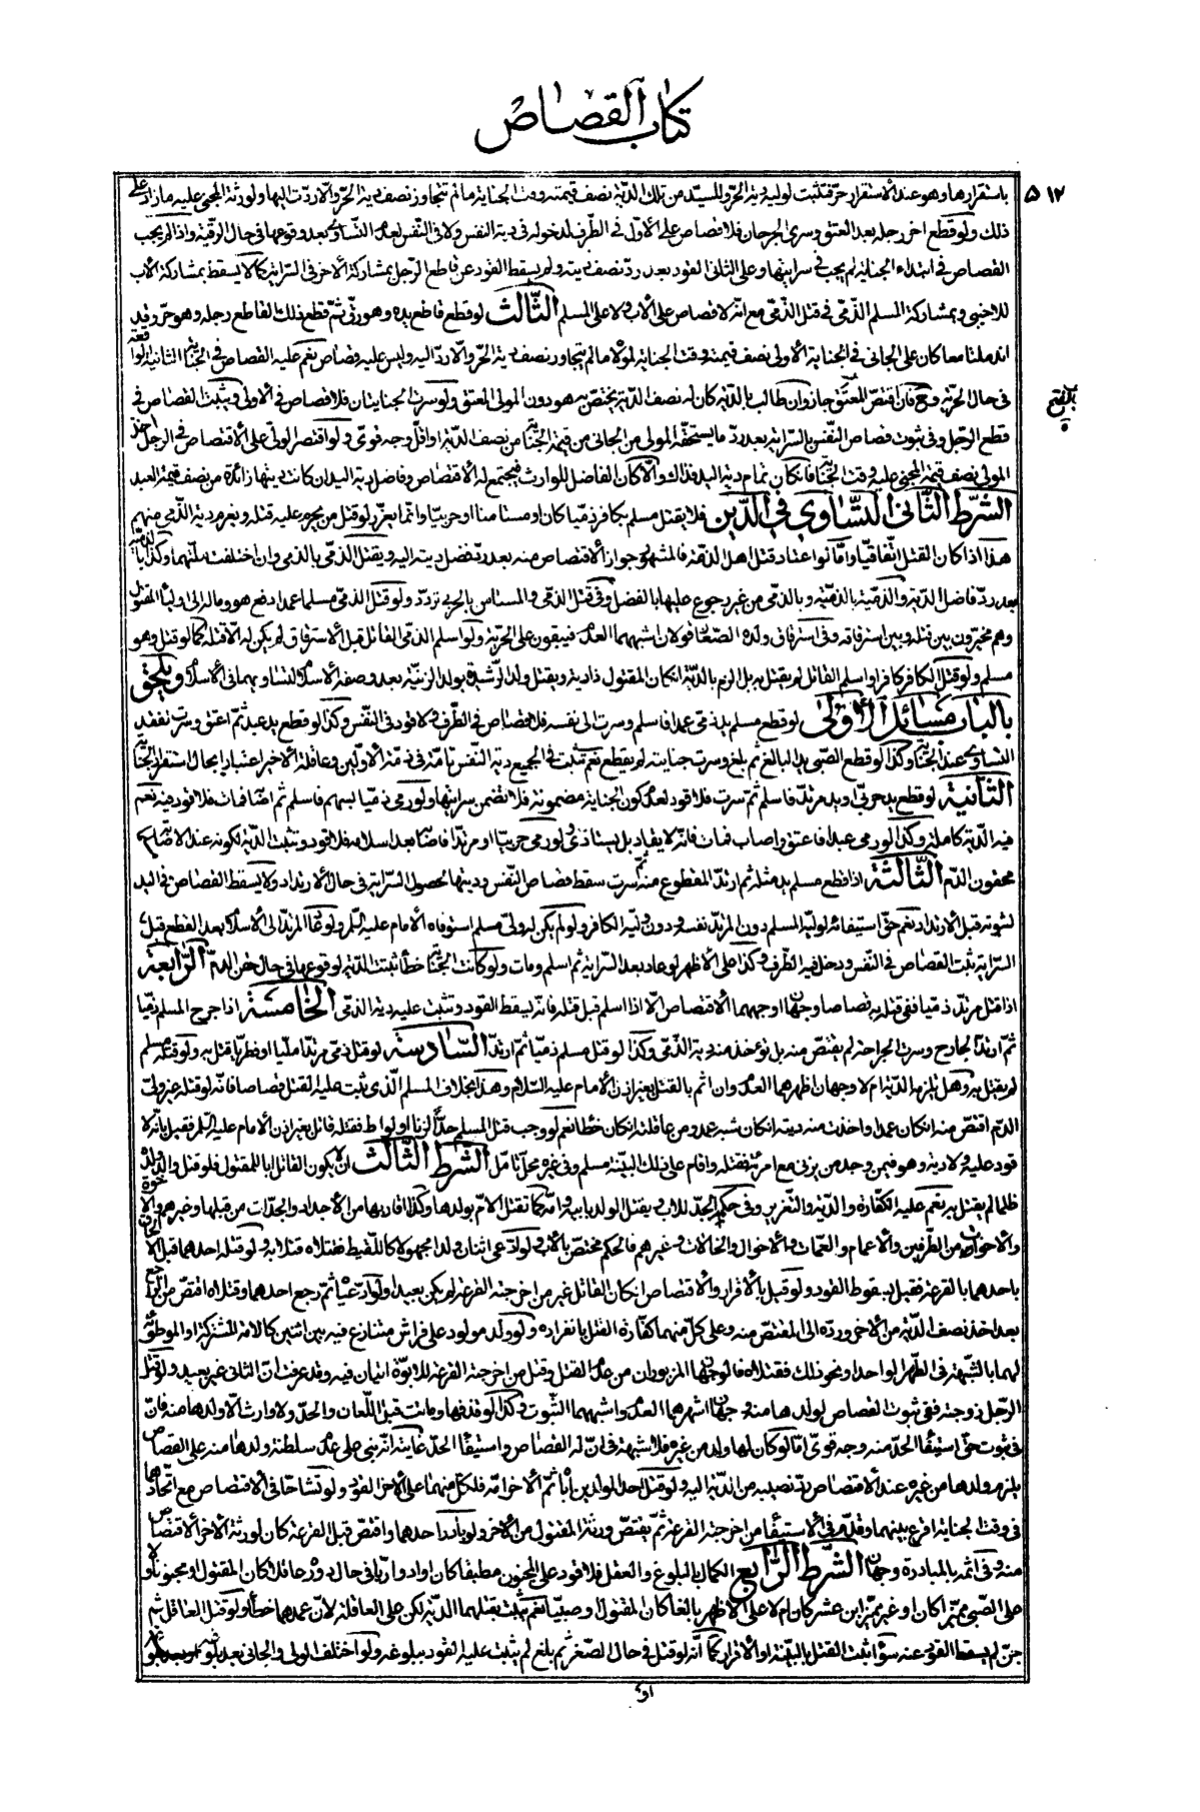 كتاب القصاص
۵۱۲
باستقرارها وهو عند الاستقرار حرّ فتثبت لوليه دية الحرّ وللسيّد من تلك الدّية نصف قيمته وقت الجناية ما لم تتجاوز نصف دية الحرّ والّا ردّت اليها ولورثة المجنى عليه ما زاد على
ذلك ولو قطع اخر رجله بعد العتق وسرى الجرحان فلا قصاص على الاوّل فى الطّرف لدخوله فى دية النفس ولا فى النّفس لعدم التساوى بعد وقوعها فى حال الرقية واذا لم يجب
القصاص فى ابتداء الجناية لم يجب فى سرايتها وعلى الثانى القود بعد ردّ نصف ديته ولم يسقط القود عن قاطع الرّجل بمشاركة الاخر فى السّراية كما لا يسقط بمشاركة الاب
للاجنبى وبمشاركة المسلم الذّمى فى قتل الذّمى مع انّه لا قصاص على الاب ولا على المسلم الثّالث لو قطع قاطع يده وهو رقّ ثمّ قطع ذلك القاطع رجله وهو حرّ وقد
اندملتا معا كان على الجانى فى الجناية الأولى نصف قيمته وقت الجناية لمولاه ما لم يتجاوز نصف دية الحرّ والّا ردّ اليه وليس عليه قصاص نعم عليه القصاص فى الجناية الثانية لوا قعة
فى حال الحرّية وح فان اقتصّ المعتق جاز وان طالب بالدّية كان له نصف الدّية يختصّ به هو دون المولى المعتق ولو سرت الجنايتان فلا قصاص فى الاولى ويثبت القصاص فى
قطع الرّجل وفى ثبوت قصاص النّفس بالسّراية بعد ردّ ما يستحقّه المولى من الجانى من قيمة الجناية من نصف الدّية او اقلّ وجه قوىّ ولو اقتصر الولىّ على الاقتصاص فى الرّجل اخذ
المولى نصف قيمة المجنى عليه وقت الجناية فان كان تمام دية اليد فذاك والّا كان الفاضل للوارث فيجتمع له الاقتصاص وفاضل دية اليد ان كانت ديتها زائدة من نصف قيمة العبد
الشّرط الثّانى التّساوى فى الدّين فلا يقتل مسلم بكافر ذمّيا كان او مستامنا او حربيّا وانّما يعزّر لو قتل من يحرم عليه قتله ويغرم دية الذّمى منهم
هذا اذا كان القتل اتّفاقيا وامّا لو اعتاد قتل اهل الذمّة فالمشهور جواز الاقتصاص منه بعد ردّ فضل ديته اليه ويقتل الذّمى بالذّمى وان اختلفت ملّتهما وكذا بالذمّية
بعد ردّ فاضل الدّية والذّمية بالذّمية وبالذّمى من غير رجوع عليها بالفضل وفى قتل الذّمى والمستامن بالحربى تردّد ولو قتل الذمّى مسلما عمدا دفع هو وماله الى اولياء المقتول
وهم مخيّرون بين قتله وبين استرقاقه وفى استرقاق ولده الصّغار قولان اشبههما العدم فيبقون على الحرّية ولو اسلم الذّمى القاتل قبل الاسترقاق لم يكن له الّا قتله كما لو قتل وهو
مسلم ولو قتل الكافر كافرا واسلم القاتل لم يقتل به بل الزم بالدّية ان كان المقتول ذا دية ويقتل ولد الرّشيدة بولد الزنية بعد وصفه الاسلام لتساويهما فى الاسلام ويلحق
بالباب مسائل الاولى لو قطع مسلم يد ذمّى عمدا فاسلم وسرت الى نفسه فلا قصاص فى الطّرف ولا قود فى النّفس وكذا لو قطع يد عبد ثمّ اعتق وسرت لفقد
التساوى عند الجناية وكذا لو قطع الصّبى يد البالغ ثم بلغ وسرت جنايته لم يقطع نعم تثبت فى الجميع دية النّفس تامّة فى ذمّة الاوّلين وعاقلة الاخير اعتبارا بحال استقرار الجناية
الثّانية لو قطع يد حربى او يد مرتدّ فاسلم ثمّ سرت فلا قود لعدم كون الجناية مضمونة فلا تضمن سرايتها ولو رمى ذميّا بسهم فاسلم ثم اصابه فمات فلا قود فيه نعم
فيه الدّية كاملة وكذا لو رمى عبدا فاعتق واصاب فمات فانّه لا يقاد به ولو رمى حربيّا او مرتدّا فاصابه بعد اسلامه فلا قود وتثبت الدّية لكونه عند الاصابة
محقون الدّم الثّالثة اذا قطع مسلم يد مثله ثم ارتدّ المقطوع منه ثم سرت سقط قصاص النّفس وديتها لحصول السّراية فى حال الارتداد ولا يسقط القصاص فى اليد
لثبوته قبل الارتداد نعم حقّ استيفائه لوليّه المسلم دون المرتدّ نفسه ودون وليّه الكافر ولو لم يكن له ولىّ مسلم استوفاه الامام عليه السّلم ولو عاد المرتدّ الى الاسلام بعد القطع قبل
السّراية ثبت القصاص فى النّفس ودخل فيه الطّرف وكذا على الاظهر لو عاد بعد السّراية ثم اسلم ومات ولو كانت الجناية خطأ ثبتت الدّية لوقوعها فى حال حقن الدم الرّابعة
اذا قتل مرتدّ ذميّا ففى قتله به قصاصا وجهان اوجههما الاقتصاص الّا اذا اسلم قبل قتله فانّه يسقط القود وتثبت عليه دية الذمّى الخامسة اذا جرح المسلم ذميّا
ثمّ ارتدّ الجارح وسرت الجراحة لم يقتصّ منه بل تؤخذ منه دية الذّمى وكذا لو قتل مسلم ذميّا ثم ارتدّ السّادسة لو قتل ذمّى مرتدّا ملّيا او فطريّا قتل به ولو قتله مسلم
لم يقتل به وهل تلزمه الدّية ام لا وجهان اظهرهما العدم وان اثم بالقتل بغير اذن الامام عليه السّلام وهذا بخلاف المسلم الّذى ثبت عليه القتل قصاصا فانّه لو قتله غير ولىّ
الدّم اقتصّ منه ان كان عمدا واخذت منه ديته ان كان شبه عمد ومن عاقلته ان كان خطأ نعم لو وجب قتل المسلم حدّا لزنا او لواط فقتله قاتل بغير اذن الامام عليه السّلم فقيل بانّه لا
قود عليه ولا دية وهو فيمن وجد من يزنى مع امرئته فقتله واقام على ذلك البيّنة مسلم وفى غيره محلّ تامّل الشّرط الثّالث ان لا يكون القاتل ابا للمقتول فلو قتل والد ولده
ظلما لم يقتل به نعم عليه الكفّارة والدّية والتّعزير وفى حكم الجدّ للاب ويقتل الولد بابيه وامّه كما تقتل الامّ بولدها وكذا اقاربها من الاجداد والجدّات من قبلها وغيرهم والاخوة
والاخوات من الطّرفين والاعمام والعمّات والاخوال والخالات وغيرهم فالحكم مختصّ بالاب ولو ادّعى اثنان ولدا مجهولا كاللّقيط فقتلاه قتلا به ولو قتله احدهما قبل الالحاق
باحدهما بالقرعة فقيل بسقوط القود ولو قيل بالاقرار والاقتصاص ان كان القاتل غير من اخرجته القرعة لم يكن بعيدا ولو ادّعياه ثمّ رجع احدهما وقتلاه اقتصّ من الراجع
بعد اخذ نصف الدّية من الاخر وردّه الى المقتصّ منه وعلى كلّ منهما كفّارة القتل بانفراده ولو ولد مولود على فراش متنازع فيه بين اثنين كالامة المشتركة او الموطوئة
لهما بالشّبهة فى الطّهر الواحد او نحو ذلك فقتلاه فالوجهان المزبوران من عدم القتل وقتل من اخرجته القرعة للابوّة اتيان فيه وقد عرفت انّ الثانى غير بعيد ولو قتل
الرّجل زوجته ففى ثبوت القصاص لولدها منه وجهان اشهرهما العدم واشبههما الثّبوت وكذا لو قذفها وماتت قبل اللّعان والحدّ ولا وارث الّا ولدها منه فانّ
فى ثبوت حقّ استيفاء الحدّ منه وجه قوىّ امّا لو كان لها ولد من غيره فلا شبهة فى انّ له القصاص واستيفاء الحدّ غايته انّه يبنى على عدم سلطنة ولدها منه على القصاص
يلزم ولدها من غيره عند الاقتصاص ردّ نصيبه من الدّية اليه ولو قتل احد الولدين اباه ثمّ الاخر امّه فلكلّ منهما على الاخر القود ولو تشاحّا فى الاقتصاص مع اتّحادهما
فى وقت الجناية اقرع بينهما وقدّم فى الاستيفاء من اخرجته القرعة ثمّ يقتصّ ورثة المقتول من الاخر ولو بادر احدهما واقتصّ قبل القرعة كان لورثة الاخر الاقتصاص
منه وفى اثمه بالمبادرة وجهان الشّرط الرّابع الكمال بالبلوغ والعقل فلا قود على المجنون مطبقا كان او ادواريّا فى حال دوره عاقلا كان المقتول او مجنونا ولا
على الصّبى مميّزا كان او غير مميّز ابن عشر كان ام لا على الاظهر بالغا كان المقتول او صبيّا نعم يثبت بقتلهما الدّية لكن على العاقلة لانّ عمدهما خطأ ولو قتل العاقل ثم
جنّ لم يسقط القود عنه سواء ثبت القتل بالبيّنة او الاقرار كما انّه لو قتل فى حال الصّغر ثم بلغ لم يثبت عليه القود ببلوغه ولو اختلف الولى والجانى بعد بلوغه
او